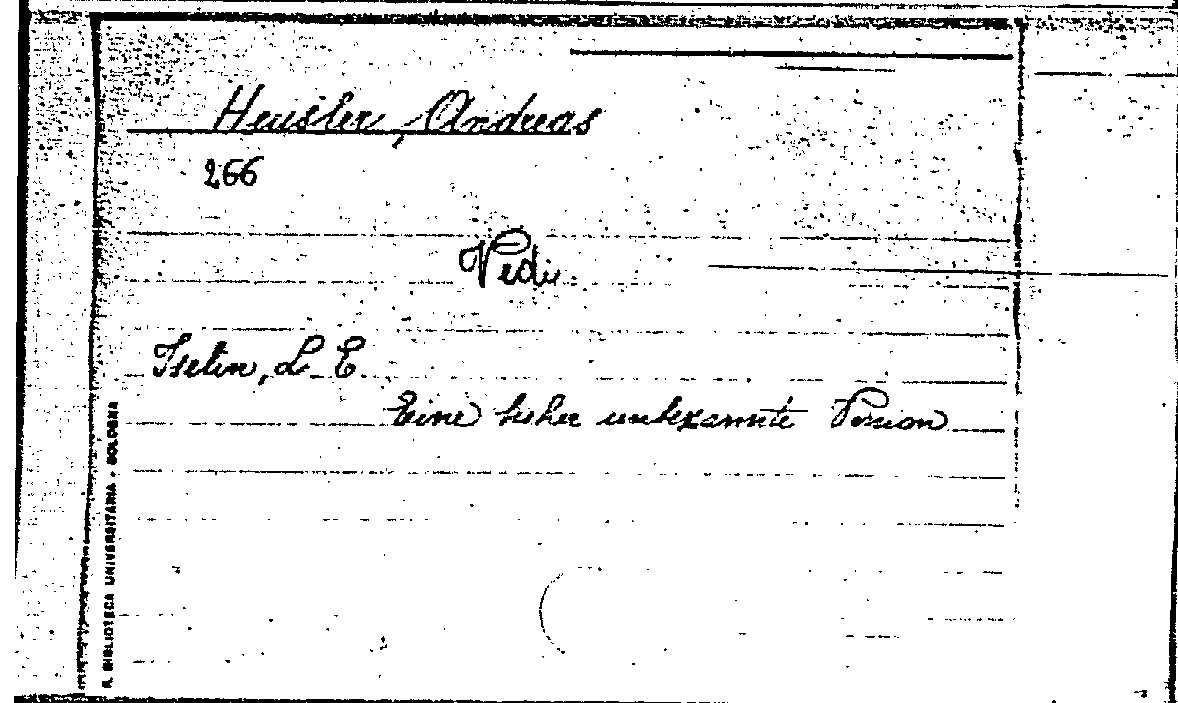 Heusler, Andreas
266
Vedi:
Iselin, L. E.
Eine bisher unbekannte Version
R. BIBLIOTECA UNIVERSITARIA - BOLOGNA